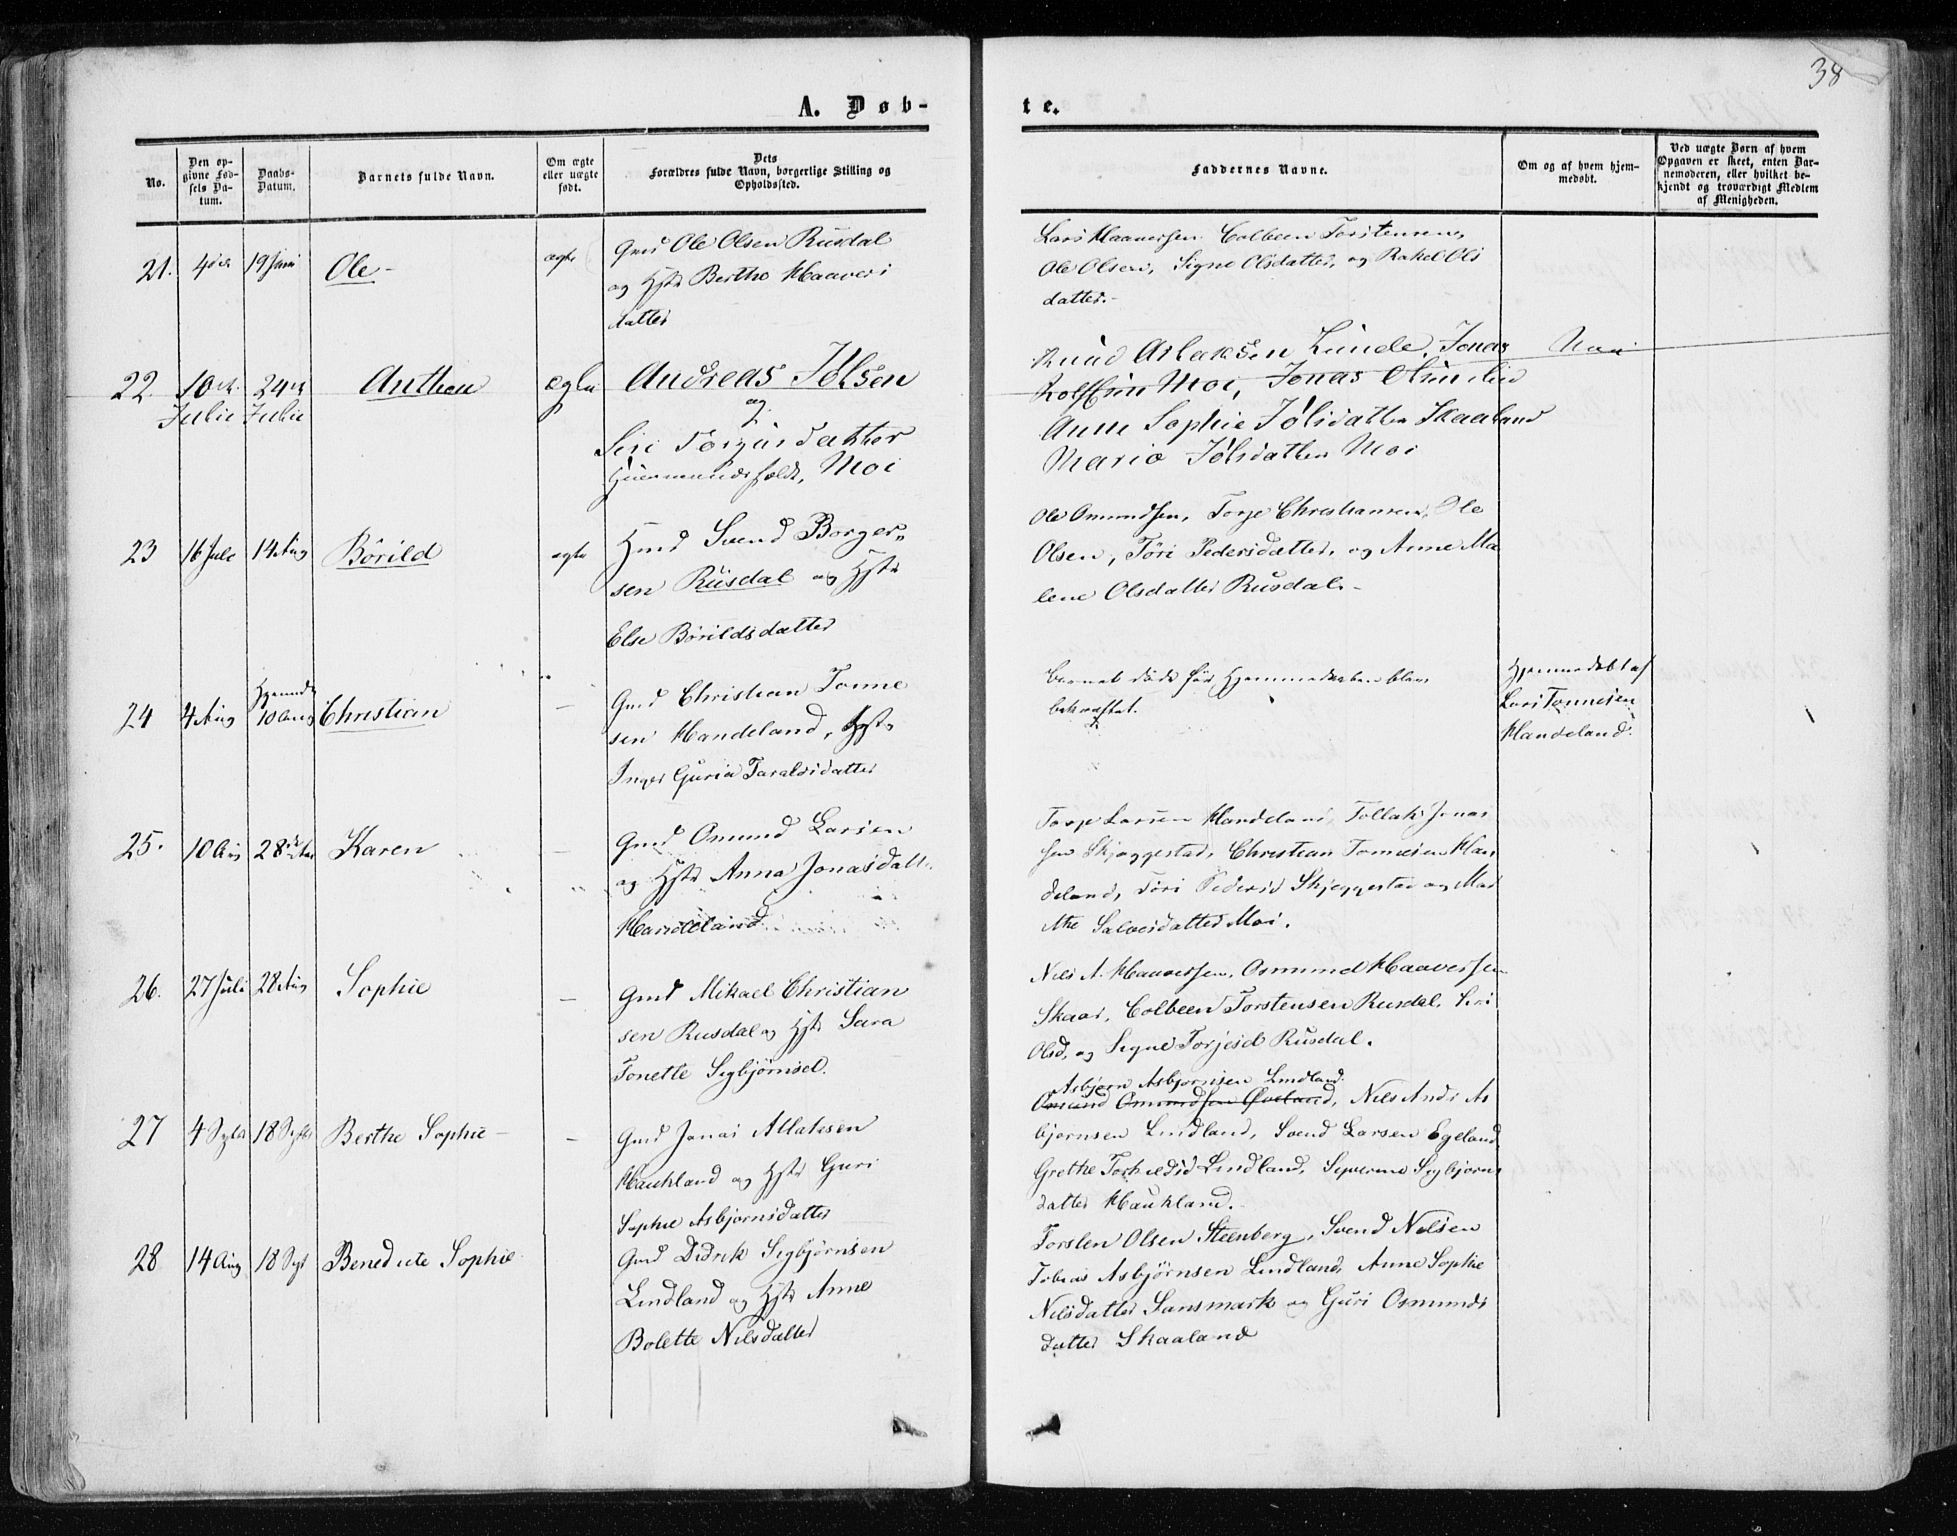 38
A. Døb-
te.
No.
Den op-
givne Fød-
sels Da-
tum.
Daabs-
Datum.
Barnets fulde Navn.
Om ægte
eller uægte
født.
Dets
Forældres fulde Navn, borgerlige Stilling og
Opholdssted.
Faddernes Navne.
Om og af hvem hjem-
medøbt.
Ved uægte Børn af hvem
Opgaven er skeet, enten Bar-
nemoderen, eller hvilket be-
kjendt og troværdigt Medlem
af Menigheden.
21. 19 Juni Ole - ægte
Gmd Ole Olsen Rusdal
og Hstr Berthe Haavers
datter
Lars Haaversen Colbeen Torstensen,
Ole Olsen, Signe Olsdatter, og Rakel Ols
datter.-
22. 10de Julie 24de Julie Anthon ægte
Andreas Jølsen
og
Siri Torgiusdatter
Moi
Knud Aslaksen Lunde, Jonas
Moi, Jonas
Anne Sophie Jølsdatter Skaaland
Marie Jølsdatter Moi
23 16 Juli 14 Aug Børild ægte
Gmd Svend Borger-
sen Rusdal og Hstr
Else Børildsdatter
Ole Omundsen, Torje Christiansen, Ole
Olsen, Tøri Pedersdatter, og Anne Ma
lene Olsdatter Rusdal.-
24 4 Aug Hjemmedbt 10 Aug Christian -
Gmd Christian Tonne
sen Handeland, Hstr
Inger Guria Taraldsdatter
Barnet døde før Hjemmedaaben blev
bekræftet.
Hjemmedøbt af
Lars Tonnesen
Handeland.
25. 10 Aug 28de Aug Karen -
Gmd Omund Larsen
og Hstr Anna Jonasdatt.
Handeland
Torje Larsen Handeland, Tollak Jonas
sen Skjeggestad, Christian Tonnesen Han
deland, Tøri Pedersd Skjeggestad og Mar
the Salvesdatter Moi.
26. 27 Juli 28 Aug Sophie -
Gmd Mikael Christian
sen Rusdal og Hstr Sara
Tonette Sigbjørnsd.
Nils A. Haaversen, Osmund Haaversen
Skaar, Colbeen Torstensen Rusdal, Siri
Olsd, og Signe Torjesd Rusdal.
27 4 Septr 18 Septr Berthe Sophie - -
Gmd Jonas Atlaksen
Haukland og Hstr Guri
Sophie Asbjørnsdatter
Asbjørn Asbjørnsen Lindland
Omund Omundsen Øveland, Nils Andr As
bjørnsen Lindland, Svend Larsen Egeland
Grethe Torkildsd Lindland, Severine Sigbjørns
datter Haukland.
28 14 Aug 18 Sept Benedicte Sophie
Gmd Didrik Sigbjørnsen
Lindland og Hstr Anne
Bolette Nilsdatter
Torsten Olsen Steenberg, Svend Nilsen
Tobias Asbjørnsen Lindland, Anne Sophie
Nilsdatter Sansmark og Guri Osmunds
datter Skaaland